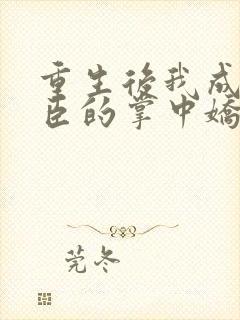 重生後我成
臣的掌中嬌
莞冬